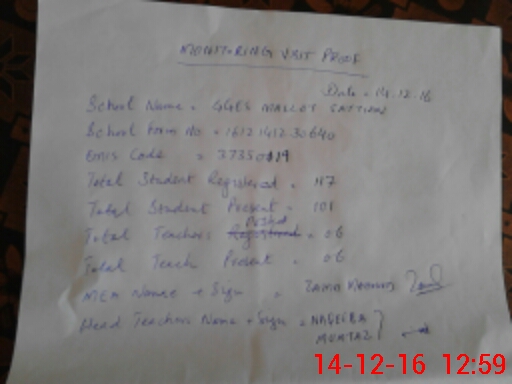 MONITORING VISIT PROOF
Date = 14.12.16
School Name = GGES MALLOT SATTIAN
School Form No = 1612141230640
EMIS Code = 37350119
Total Student Registered = 117
Total Student Present = 101
Total Teachers Posted Registered = 06
Total Teach Present = 06
MEA Name + Sign =
Head Teachers Name + Sign = NAGEEBA
MUMTAZ
14-12-16 12:59